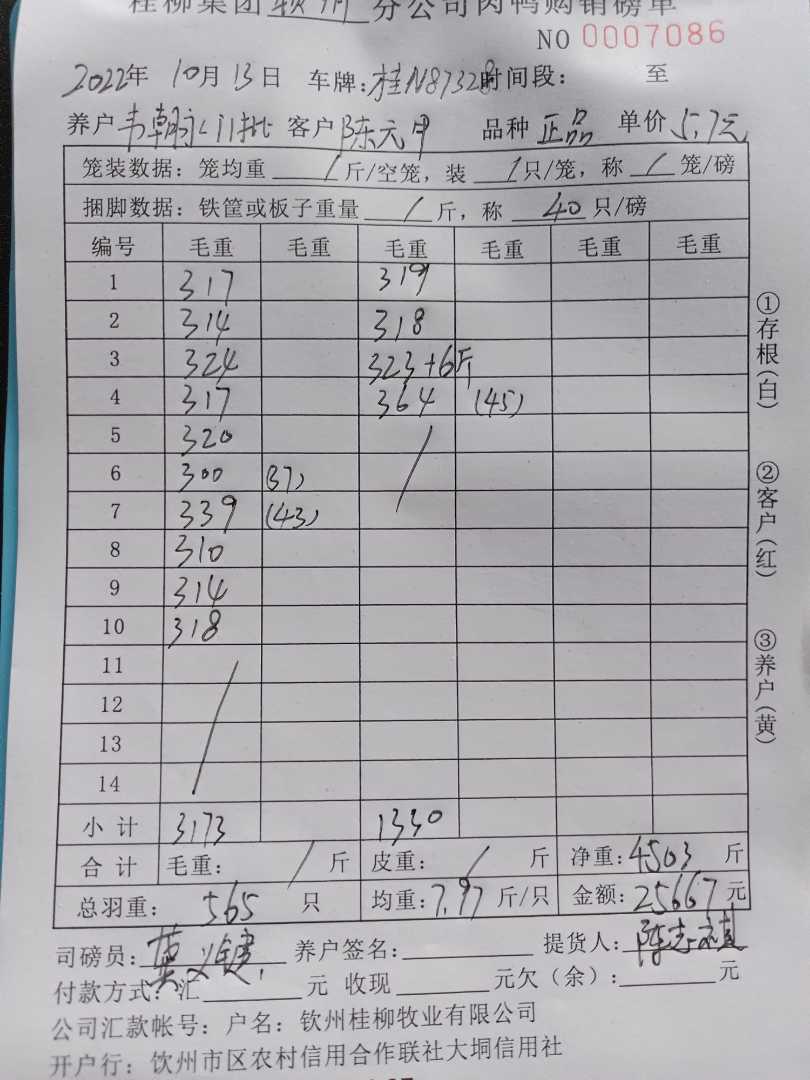 桂柳集团钦州分公司肉鸭购销磅单
NO 0007086
2022年 10月 13日 车牌:桂N87328 时间段: 至
养户 韦朝永(1)批 客户 陈元甲 品种 正品 单价 5.7元
笼装数据: 笼均重 / 斤/空笼, 装 / 只/笼, 称 / 笼/磅
捆脚数据: 铁筐或板子重量 / 斤, 称 40 只/磅
编号 毛重 毛重 毛重 毛重 毛重 毛重
1 317 319
2 314 318
3 324 323+6斤
4 317 364 (45)
5 320 /
6 300 (37)
7 339 (43)
8 310
9 314
10 318
11 /
12
13
14
小计 3173 1330
合计 毛重: / 斤 皮重: / 斤 净重: 4503 斤
总羽重: 565 只 均重: 7.97 斤/只 金额: 25667 元
司磅员: 莫义健 养户签名: 提货人: 陈志
付款方式: 汇 元 收现 元欠(余): 元
公司汇款帐号: 户名: 钦州桂柳牧业有限公司
开户行: 钦州市区农村信用合作联社大垌信用社
①存根(白)
②客户(红)
③养户(黄)